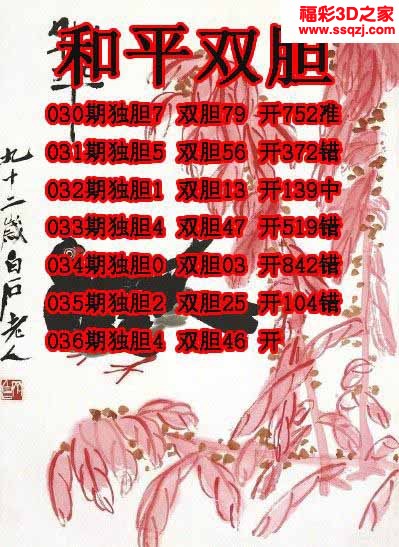 福彩3D之家
www.ssqzj.com
和平双胆
030期独胆7 双胆79 开752准
031期独胆5 双胆56 开372错
032期独胆1 双胆13 开139中
033期独胆4 双胆47 开519错
034期独胆0 双胆03 开842错
035期独胆2 双胆25 开104错
036期独胆4 双胆46 开
九十二岁白石老人